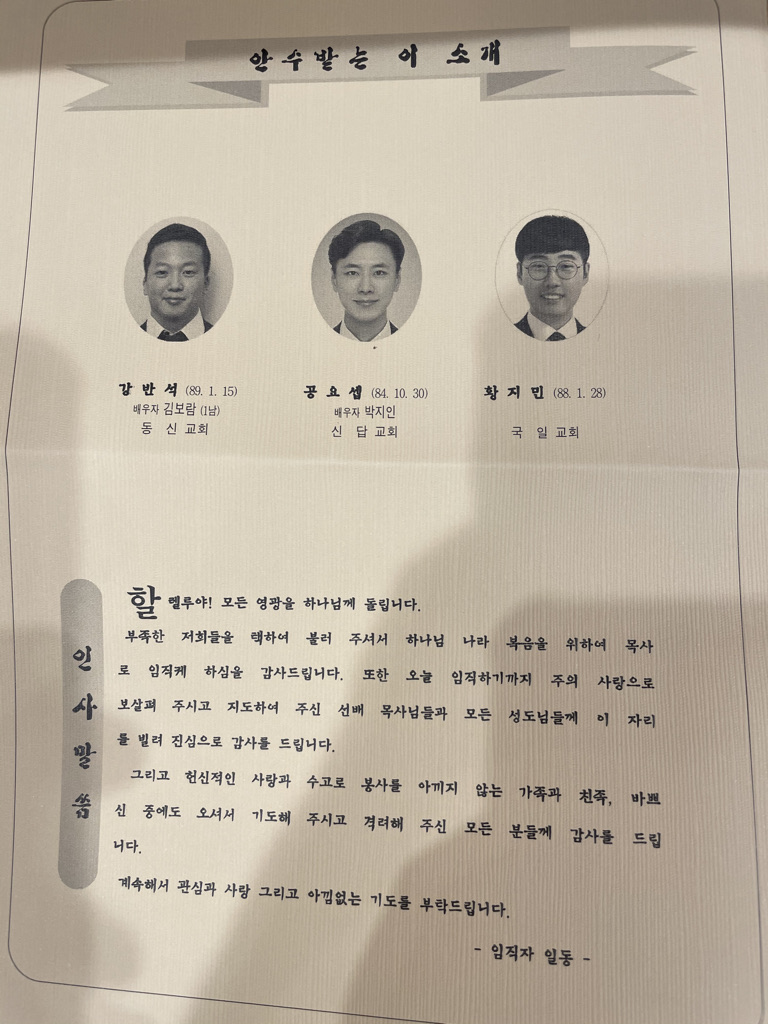 안수받는 이 소개
강반석 (89. 1. 15)
배우자 김보람 (1남)
동 신 교회
공요셉 (84. 10. 30)
배우자 박지인
신 답 교회
황지민 (88. 1. 28)
국 일 교회
인사말씀
할렐루야! 모든 영광을 하나님께 돌립니다.
부족한 저희들을 택하여 불러 주셔서 하나님 나라 복음을 위하여 목사
로 임직케 하심을 감사드립니다. 또한 오늘 임직하기까지 주의 사랑으로
보살펴 주시고 지도하여 주신 선배 목사님들과 모든 성도님들께 이 자리
를 빌려 진심으로 감사를 드립니다.
그리고 헌신적인 사랑과 수고로 봉사를 아끼지 않는 가족과 친족, 바쁘
신 중에도 오셔서 기도해 주시고 격려해 주신 모든 분들께 감사를 드립
니다.
계속해서 관심과 사랑 그리고 아낌없는 기도를 부탁드립니다.
- 임직자 일동 -